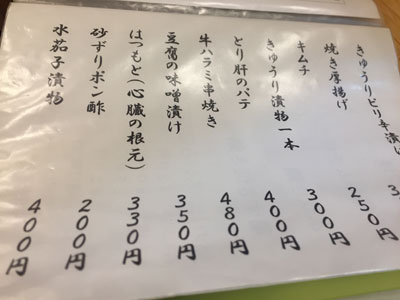 きゅうりピリ辛漬
焼き厚揚げ 3
キムチ 250円
きゅうり漬物一本 300円
とり肝のパテ 400円
牛ハラミ串焼き 480円
豆腐の味噌漬け 350円
はつもと(心臓の根元) 330円
砂ずりポン酢 200円
水茄子漬物 400円